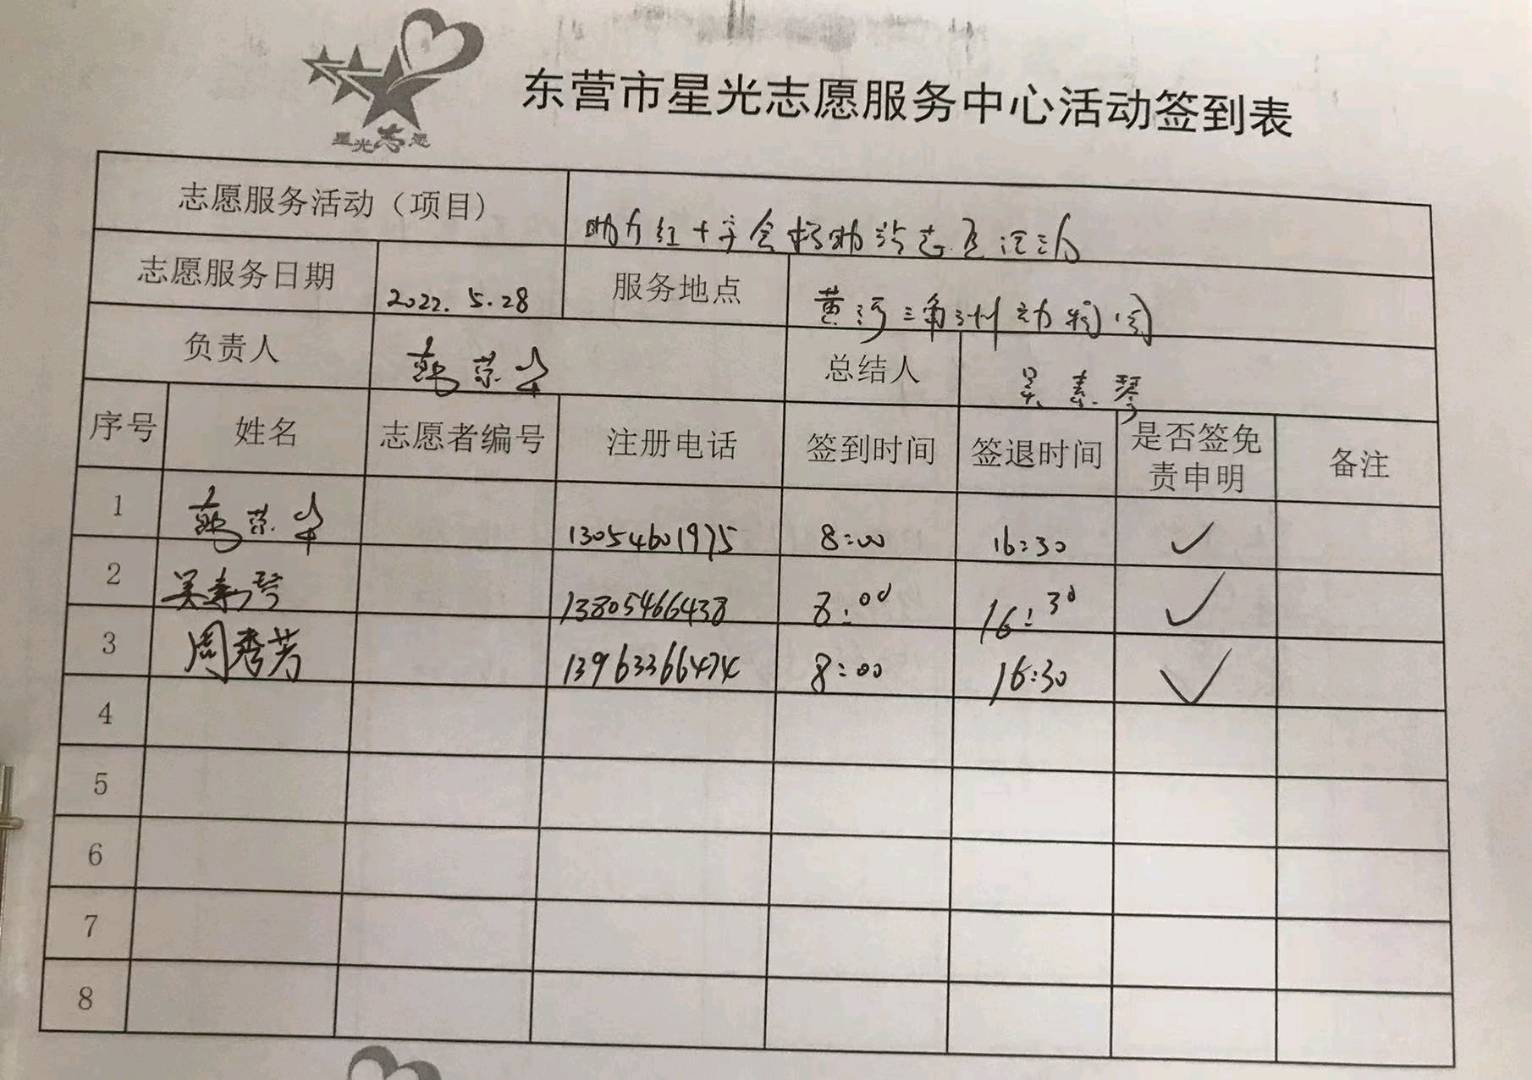 星光志愿
东营市星光志愿服务中心活动签到表
志愿服务活动（项目） 助力红十字会救助站志愿活动
志愿服务日期 2022.5.28 服务地点 黄河三角洲动物园
负责人 韩荣华 总结人 吴素琴
序号 姓名 志愿者编号 注册电话 签到时间 签退时间 是否签免责申明 备注
1 韩荣华 13054601975 8:00 16:30 ✓
2 吴素琴 13805466438 8:00 16:30 ✓
3 周秀芳 13963366474 8:00 16:30 ✓
4
5
6
7
8